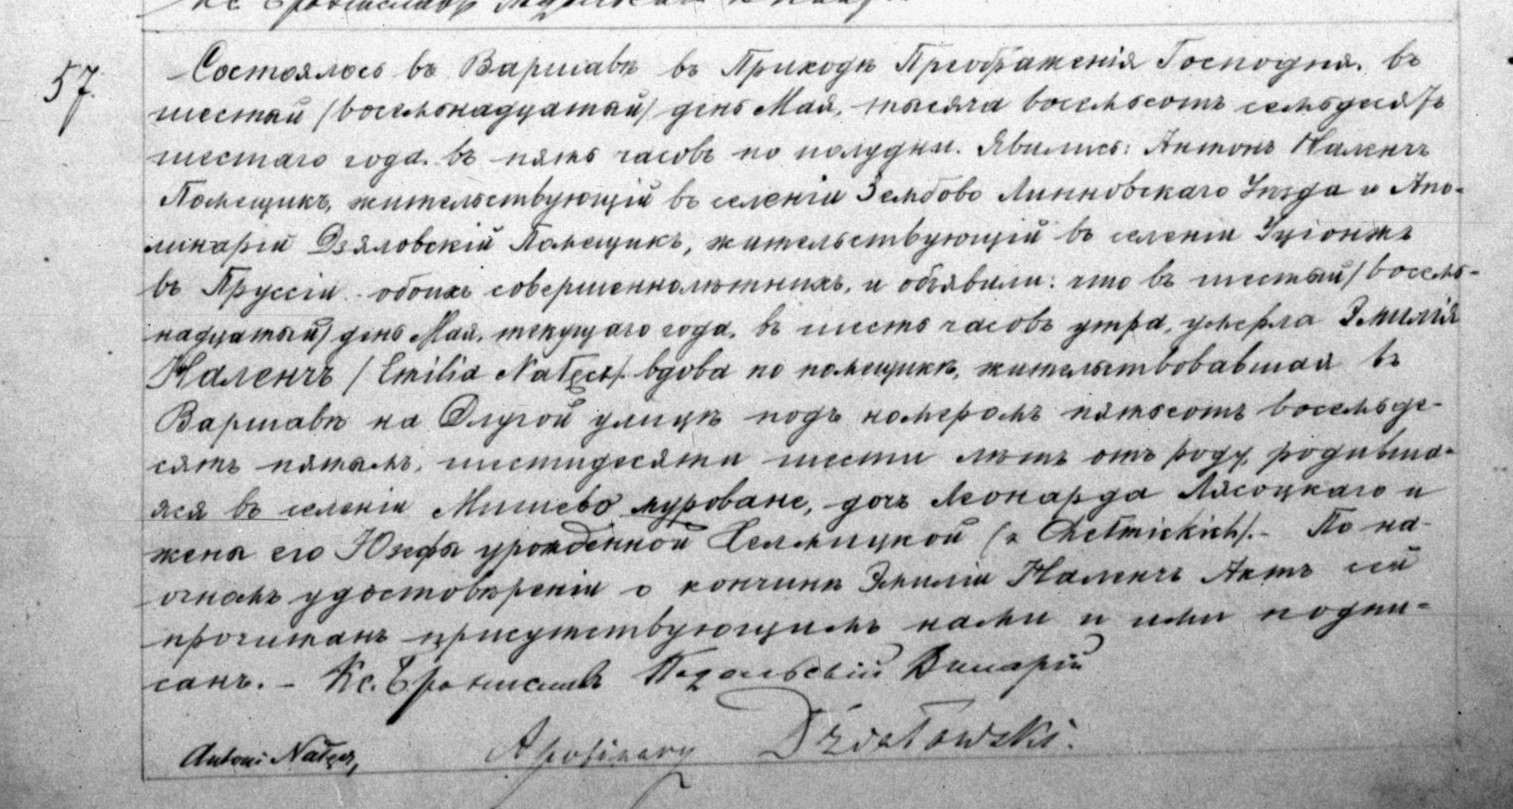 57.
Состоялось въ Варшавѣ въ Приходѣ Преображенія Господня. въ
шестый /восемьнадцатый/ день Мая, тысяча восемьсотъ семьдесятъ
шестаго года. въ пять часовъ по полудни. Явились: Антонъ Наленчъ
Помещикъ, жительствующій въ селеніи Зембово Липновскаго Уѣзда и Апо-
линарій Дзяловскій Помещикъ, жительствующій въ селеніи
въ Пруссіи обоихъ совершеннолѣтнихъ, и объявили: что въ шестый /восемь-
надцатый/ день Мая, текущаго года, въ шесть часовъ утра, умерла Эмилія
Наленчъ /Emilia Nałęcz/ вдова по помещикѣ, жительствовавшая въ
Варшавѣ на Длугой улицѣ подъ номеромъ пятьсотъ восемьде-
сятъ пятымъ, шестидесяти шести лѣтъ отъ роду, родивша-
яся въ селеніи Мишево мурованe, дочь Леонарда Лясоцкаго и
жены его Юзефы урожденной Хелмицкой (z Chełmickich/.- По на-
очномъ удостовѣреніи о кончинѣ Эмиліи Наленчъ Актъ сей
прочитанъ присутствующимъ нами и ими подпи-
санъ. - Кс. Брониславъ Викарій
Antoni Nałęcz,
Apolinary Działowski.